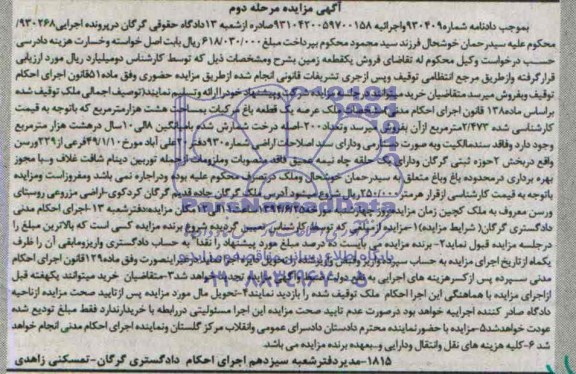 آگهی مزایده مرحله دوم
بموجب دادنامه شماره ۹۳۰۴۰۹واجرائیه ۹۳۱۰۴۲۰۰۵۹۷۰۰۱۵۸صادره ازشعبه ۱۳دادگاه حقوقی گرگان درپرونده اجرایی۹۳۰۲۶۸/
محکوم علیه سیدرحمان خوشحال فرزند سید محمود محکوم بپرداخت مبلغ ۶۱۸/۰۳۰/۰۰۰ریال بابت اصل خواسته وخسارت هزینه دادرسی
حسب درخواست وکیل محکوم له تقاضای فروش یکقطعه زمین بشرح ومشخصات ذیل که توسط کارشناس دومیلیارد ریال مورد ارزیابی
قرارگرفته وازطریق مرجع انتظامی توقیف وپس ازجری تشریفات قانونی انجام شده ازطریق مزایده حضوری وفق ماده ۵۱قانون اجرای احکام
توقیف وبفروش میرسد متقاضیان خرید میتوانند درجلسه مزایده شرکت وپیشنهاد خودرا ارائه وتسلیم نمایند(توصیف اجمالی ملک توقیف شده
براساس ماده۱۳۸ قانون اجرای احکام مدنی) مشخصات ملک عرصه یک قطعه باغ مرکبات بمساحت هشت هزارمترمربع که باتوجه به قیمت
کارشناسی شده ۲/۴۷۳مترمربع ازآن بفروش میرسد وتعداد۲۰۰-اصله درخت سفارش شده بامیانگین ۸الی۱۰ سال درهشت هزار مترمربع
وجود دارد وفاقد سندمالکیت وبه صورت دستارمی ودارای سند اصلاحات اراضی شماره ۹۳۰دفتر۲۰علی آباد مورخ ۴۹/۱/۱۰فرعی از۲۳۹ورسن
واقع دربخش ۲حوزه ثبتی گرگان ودارای یک حلقه چاه نیمه عمیق فاقد منصوبات وملزومات ازجمله توربین دینام شافت غلاف و...با مجوز
بهره برداری درمحدوده باغ وباغ متعلق به سیدرحمان خوشحال وملک درتصرف محکوم علیه بوده ودراجاره نمی باشد ومفروزاست ومزایده
باتوجه به قیمت کارشناسی ازقرار هرمتر ۲۵۰/۰۰۰ریال شروع میشود آدرس ملک گرگان جاده قدیم گرگان کردکوی-اراضی مزروعی روستای
ورسن معروف به ملک کچین زمان مزایده روز چهارشنبه مورخه ۱۳۹۴/۶/۲۵ساعت ۱۱الی۱۲مکان مزایده:دفترشعبه ۱۳-اجرای احکام مدنی
دادگستری گرگان( شرایط مزایده)۱-مزایده ازمبلغی که توسط کارشناس تعیین گردیده شروع برنده مزایده کسی است که بالاترین مبلغ را
درجلسه مزایده قبول نماید۲- برنده مزایده می بایست ۱۰ درصد مبلغ مورد پیشنهاد را نقدا" به حساب دادگستری واریزومابقی آن را ظرف
یکماه ازتاریخ اجرای مزایده به حساب سپرده واریز
مدنی سپرده پس ازکسرهزینه های اجرایی به نفع دولت ضبط مزایده تجدید خواهد شد۳-متقاضیان خرید میتوانند یکهفته قبل
ازاجرای مزایده با هماهنگی این اجرا احکام ملک توقیف شده را بازدید نمایند۴-تحویل مال مورد مزایده پس ازتایید صحت مزایده ازناحیه
دادگاه صادر کننده اجراییه خواهد بود درصورت عدم تایید صحت مزایده این اجرا مسئولیتی دررابطه با خریدارندارد فقط مبلغ تودیع شده
عودت خواهدشد۵-مزایده با حضورنماینده محترم دادستان دادسرای عمومی وانقلاب مرکز گلستان ونماینده اجرای احکام مدنی انجام خواهد
شد ۶-کلیه هزینه های نقل وانتقال ودارایی و...بعهده برنده مزایده می باشد.
۱۸۱۵-مدیردفترشعبه سیزدهم اجرای احکام دادگستری گرگان-تمسکنی زاهدی
ParsNamadData
۰۲۱-۸۸۳۴۹۶۷۰-۵